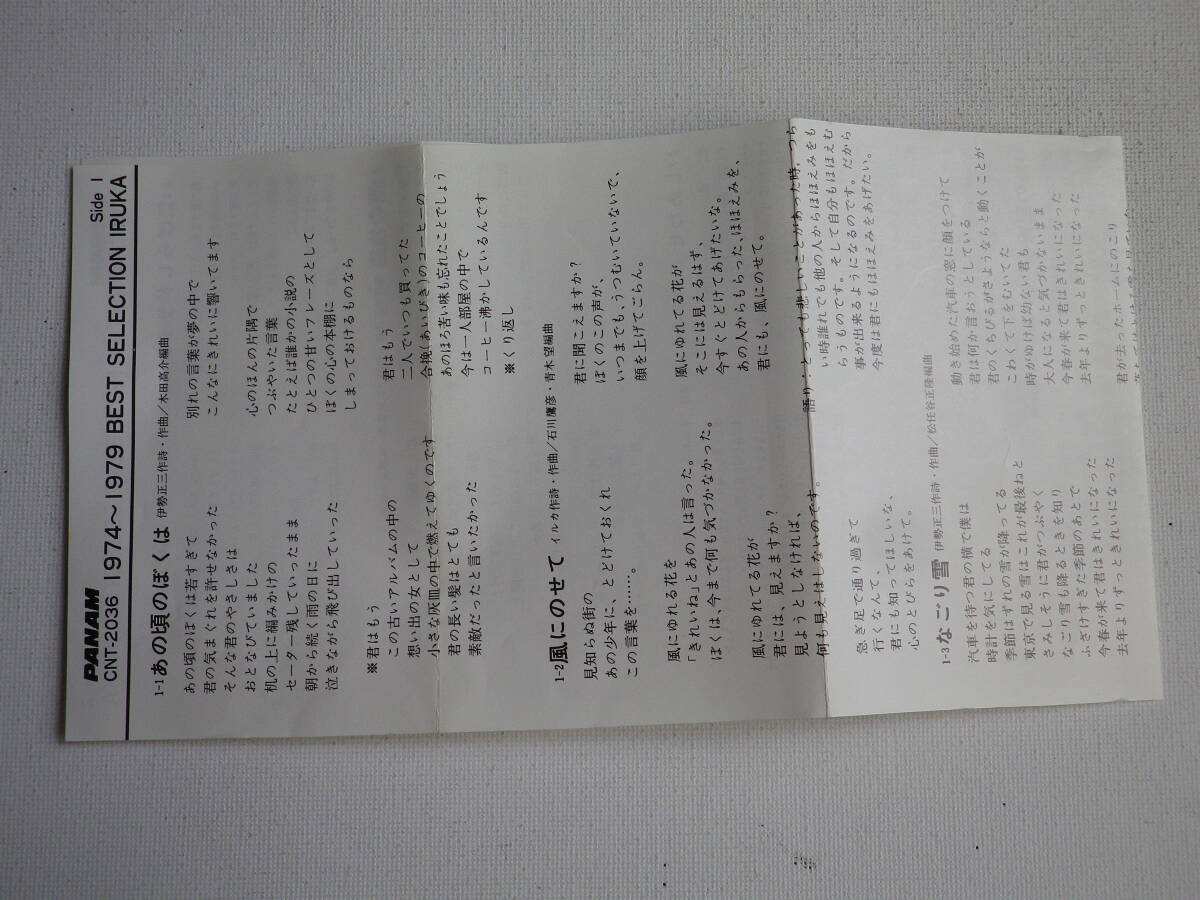 PANAM
CNT-2036 1974～1979 BEST SELECTION IRUKA
Side 1
1-1 あの頃のぼくは 伊勢正三作詩・作曲／木田高介編曲
あの頃のぼくは若すぎて
君の気まぐれを許せなかった
そんな君のやさしさは
おとなびていました
机の上に編みかけの
セーター残していったまま
朝から続く雨の日に
泣きながら飛び出していった
※君はもう
この古いアルバムの中の
想い出の女として
小さな灰皿の中で燃えてゆくのです
君の長い髪はとても
素敵だったと言いたかった
別れの言葉が夢の中で
こんなにきれいに響いてます
心のほんの片隅で
つぶやいた言葉
たとえば誰かの小説の
ひとつの甘いフレーズとして
ぼくの心の本棚に
しまっておけるものなら
君はもう
二人でいつも買ってた
合挽(あいびき)のコーヒーの
あのほろ苦い味も忘れたことでしょう
今は一人部屋の中で
コーヒー沸かしているんです
※くり返し
1-2 風にのせて イルカ作詩・作曲／石川鷹彦・青木望編曲
見知らぬ街の
あの少年に、とどけておくれ
この言葉を……。
風にゆれる花を
「きれいね」とあの人は言った。
ぼくは、今まで何も気づかなかった。
風にゆれてる花が
君には、見えますか?
見ようとしなければ、
何も見えはしないのです。
急ぎ足で通り過ぎて
行くなんて、
君にも知ってほしいな、
心のとびらをあけて。
君に聞こえますか?
ぼくのこの声が、
いつまでも、うつむいていないで、
顔を上げてごらん。
風にゆれてる花が
そこには見えるはず、
今すぐとどけてあげたいな。
あの人からもらった、ほほえみを、
君にも、風にのせて。
語り：とっても悲しいことがあった時，つら
い時誰れでも他の人からほほえみをも
らうものです。そして自分もほほえむ
事が出来るようになるのです。だから
今度は君にもほほえみをあげたい。
1-3 なごり雪 伊勢正三作詩・作曲／松任谷正隆編曲
汽車を待つ君の横で僕は
時計を気にしてる
季節はずれの雪が降ってる
東京で見る雪はこれが最後ねと
さみしそうに君がつぶやく
なごり雪も降るときを知り
ふざけすぎた季節のあとで
今春が来て君はきれいになった
去年よりずっときれいになった
動き始めた汽車の窓に顔をつけて
君は何か言おうとしている
君のくちびるがさようならと動くことが
こわくて下をむいてた
時がゆけば幼ない君も
大人になると気づかないまま
今春が来て君はきれいになった
去年よりずっときれいになった
君が去ったホームにのこり